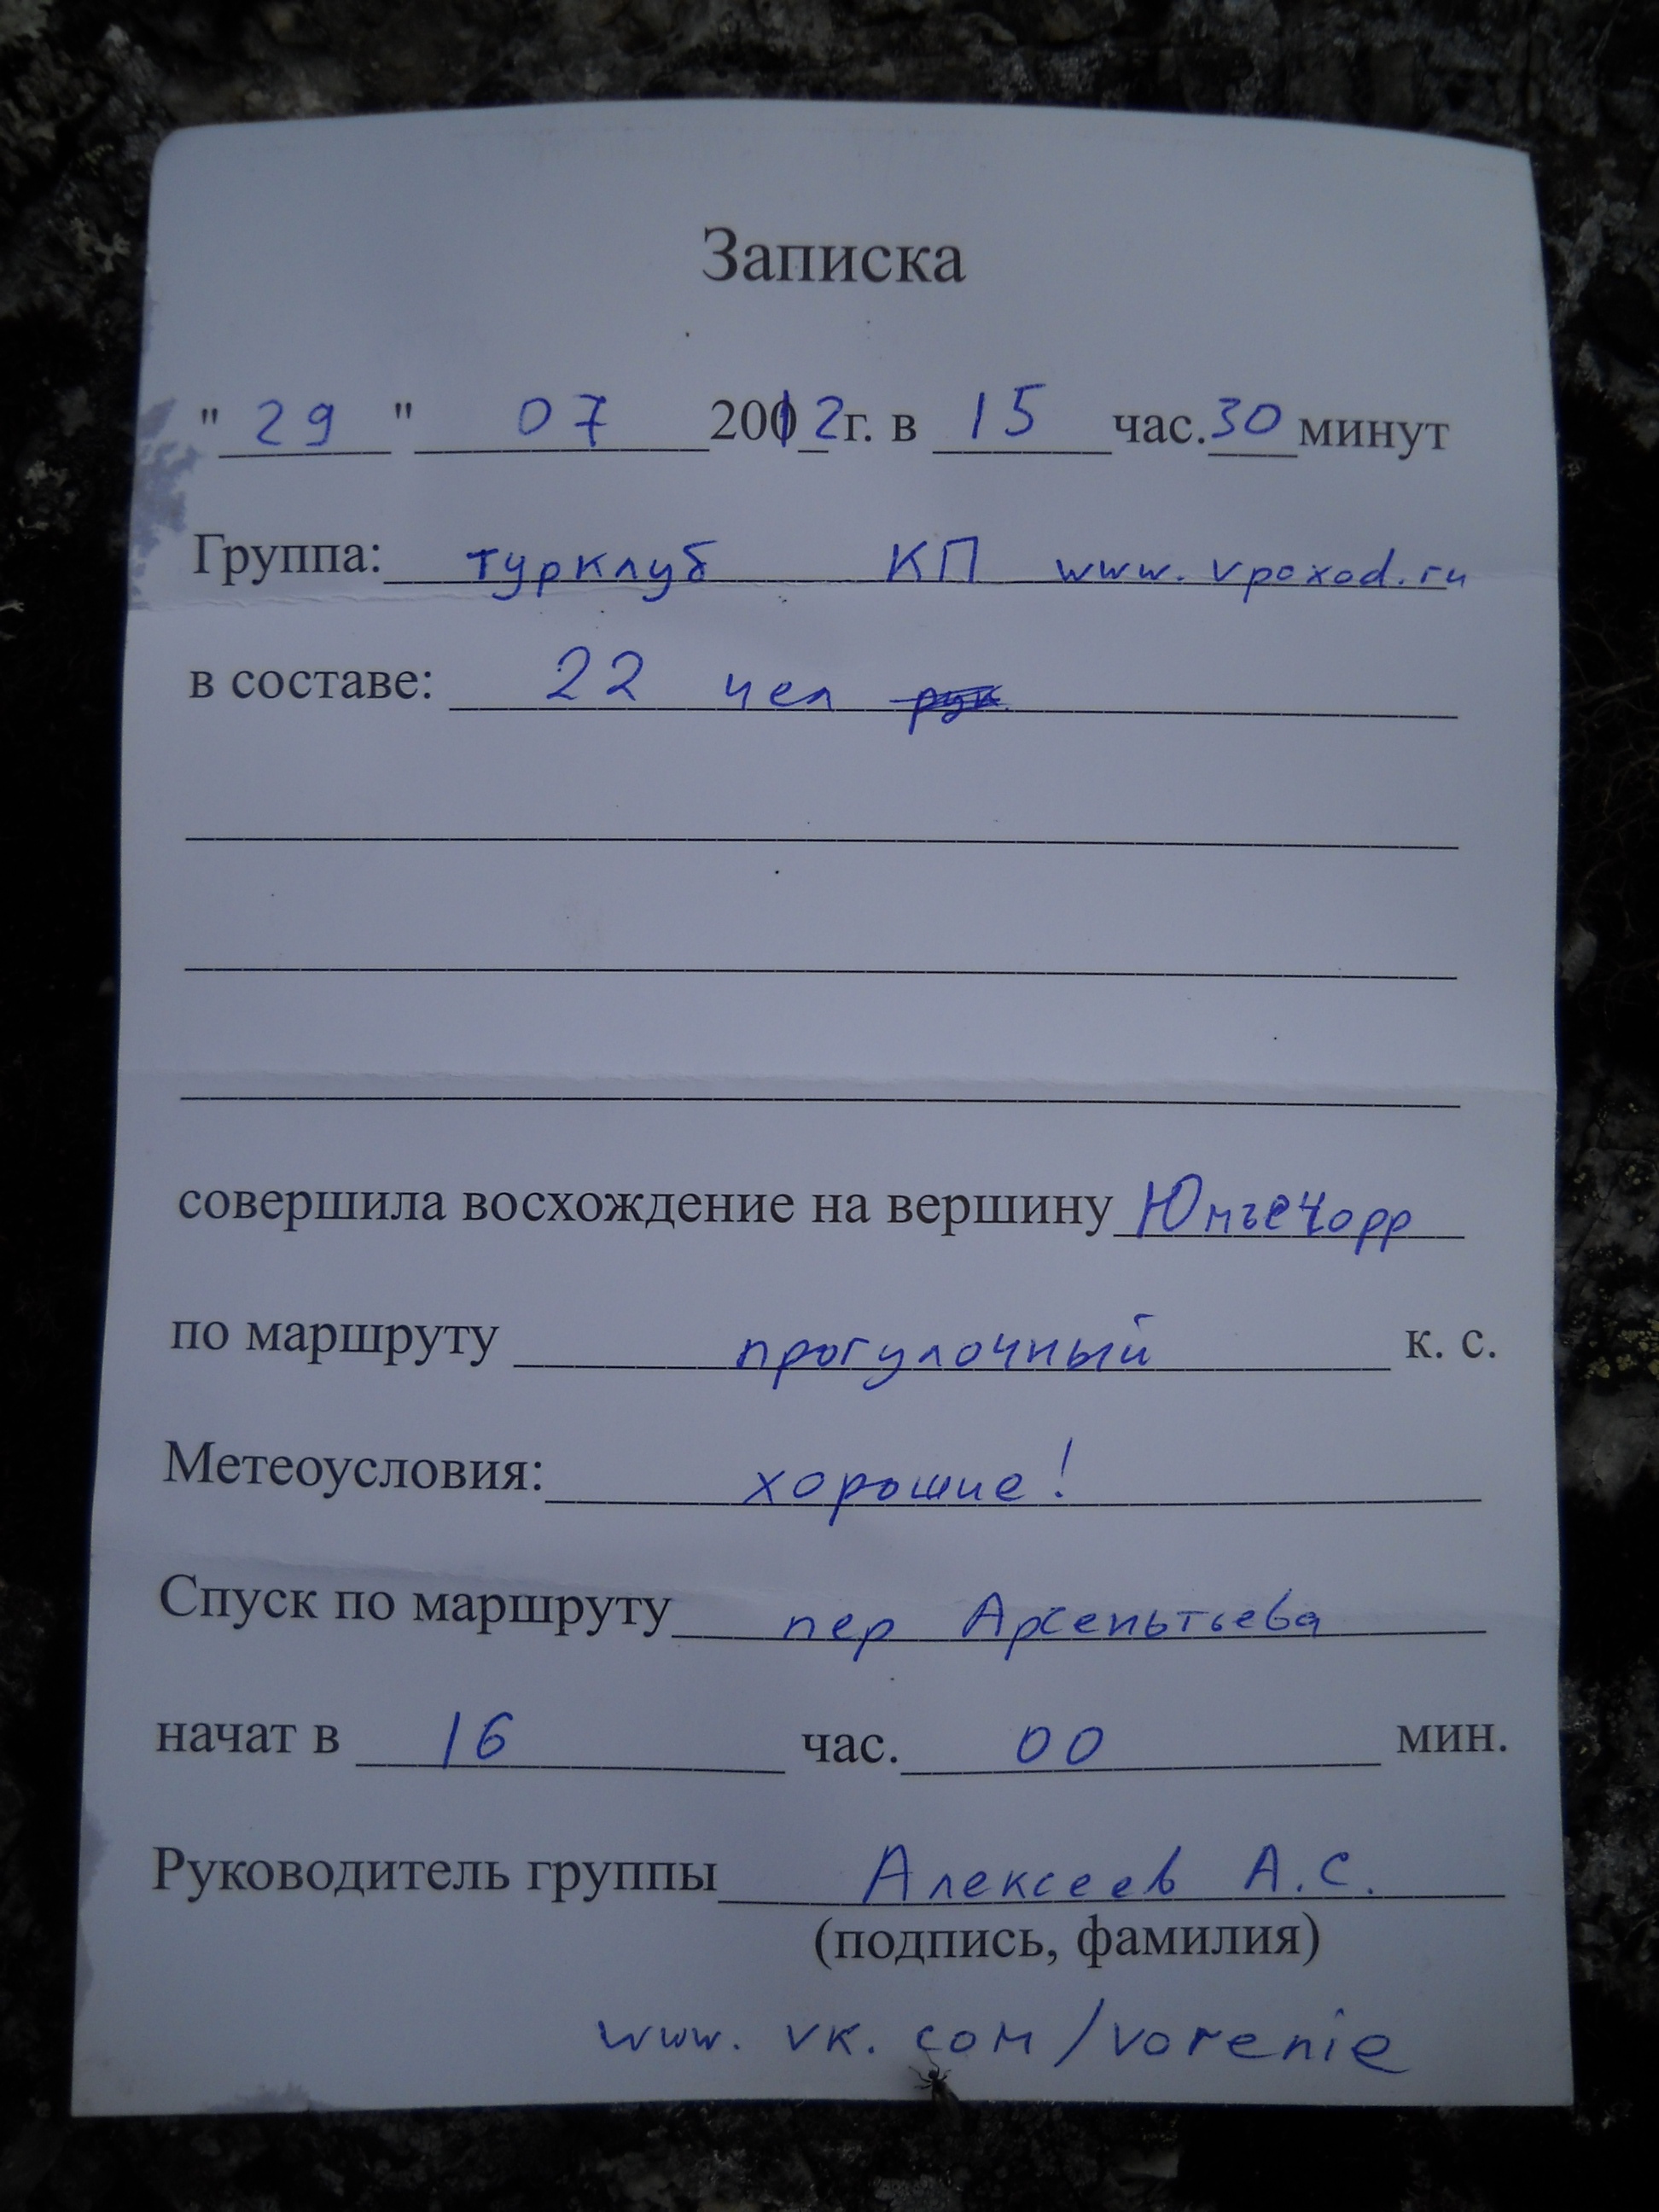 Записка
"29" 07 2012г. в 15 час. 30 минут
Группа: турклуб КП www.vpoxod.ru
в составе: 22 чел рук.
совершила восхождение на вершину Юмъечорр
по маршруту прогулочный к. с.
Метеоусловия: хорошие!
Спуск по маршруту пер Арсеньтьева
начат в 16 час. 00 мин.
Руководитель группы Алексеев А.С.
(подпись, фамилия)
www.vk.com/vorenie